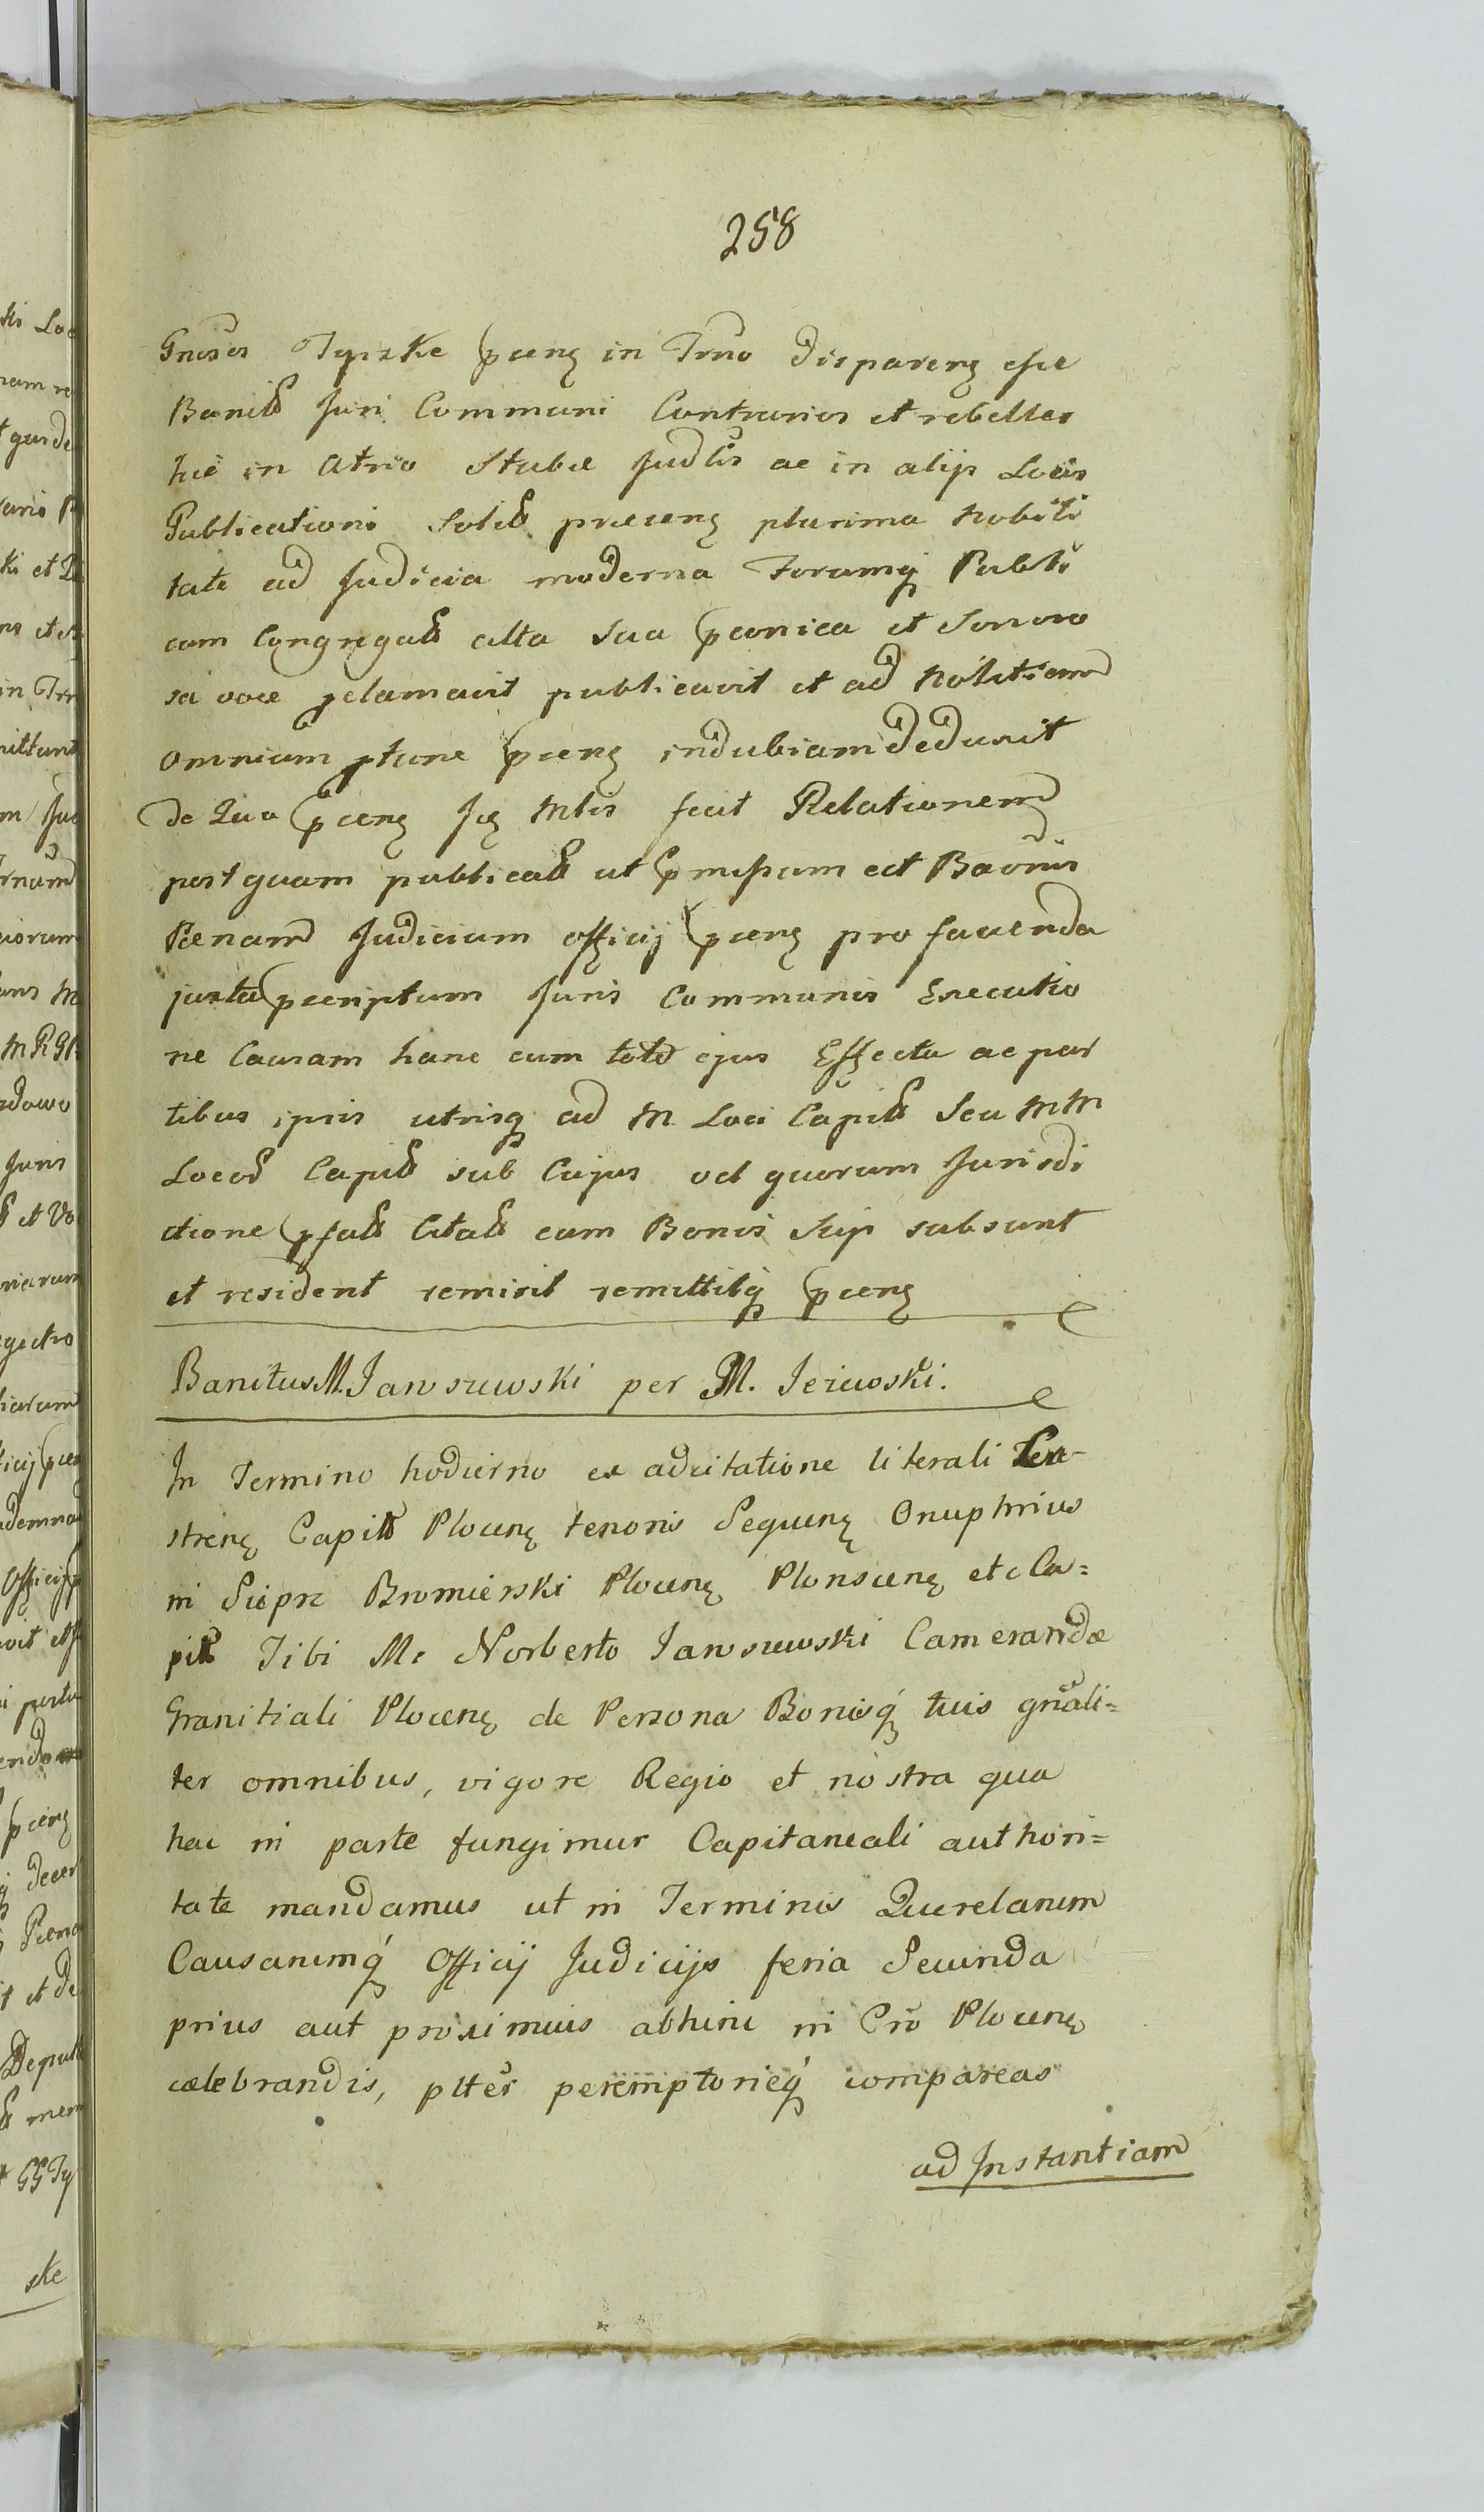 258
Gnosos Tyszke pcens in Trno disparens esse
Banitos Juri Communi Contrarios et rebelles
hic in Atrio Stubæ Judlis ac in alijs Locis
Publicationi Solitis præcens plurima Nobili
tate ad Judicia moderna Forumq Publi
cum Congregatis alta Sua pconica et Sonoro
sa voce pclamavit publicavit et ad Notitiam
omnium ptunc pcens indubiam deduxit
de Qua pcens Jus Mtis fecit Relationem
post quam publicatis ut pmissum est Baonis
Pænam Judicium Officij pcens pro facienda
juxta pcriptum Juris Communis Executio
ne Causam hanc cum toto ejus Effectu ac par
tibus ipsis utrisq ad M Loci Capitis Seu MM
Locos Capitis sub Cujus vel quorum Jurisdi
ctione pfatis Citatis cum Bonis Suis subsunt
et resident remisit remittitq pcens
Banitus M. Jaroszewski per M. Jezewski.
In Termino hodierno ex adcitatione literali Ca-
strens Capitis Plocens tenoris Sequens Onuphrius
in Sieprc Bromierski Plocens Plonscens etc Ca=
pitis Tibi M. Norberto Jaroszewski Camerandæ
Granitiali Plocens de Persona Bonisq tuis gnali=
ter omnibus, vigore Regio et nostra qua
hac in parte fungimur Capitaneali authori=
tate mandamus ut in Terminis Querelarum
Causarumq Officij Judicijs feria Secunda
prius aut proximius abhinc in Cro Plocens
celebrandis, plter peremptorieq compareas
ad Instantiam